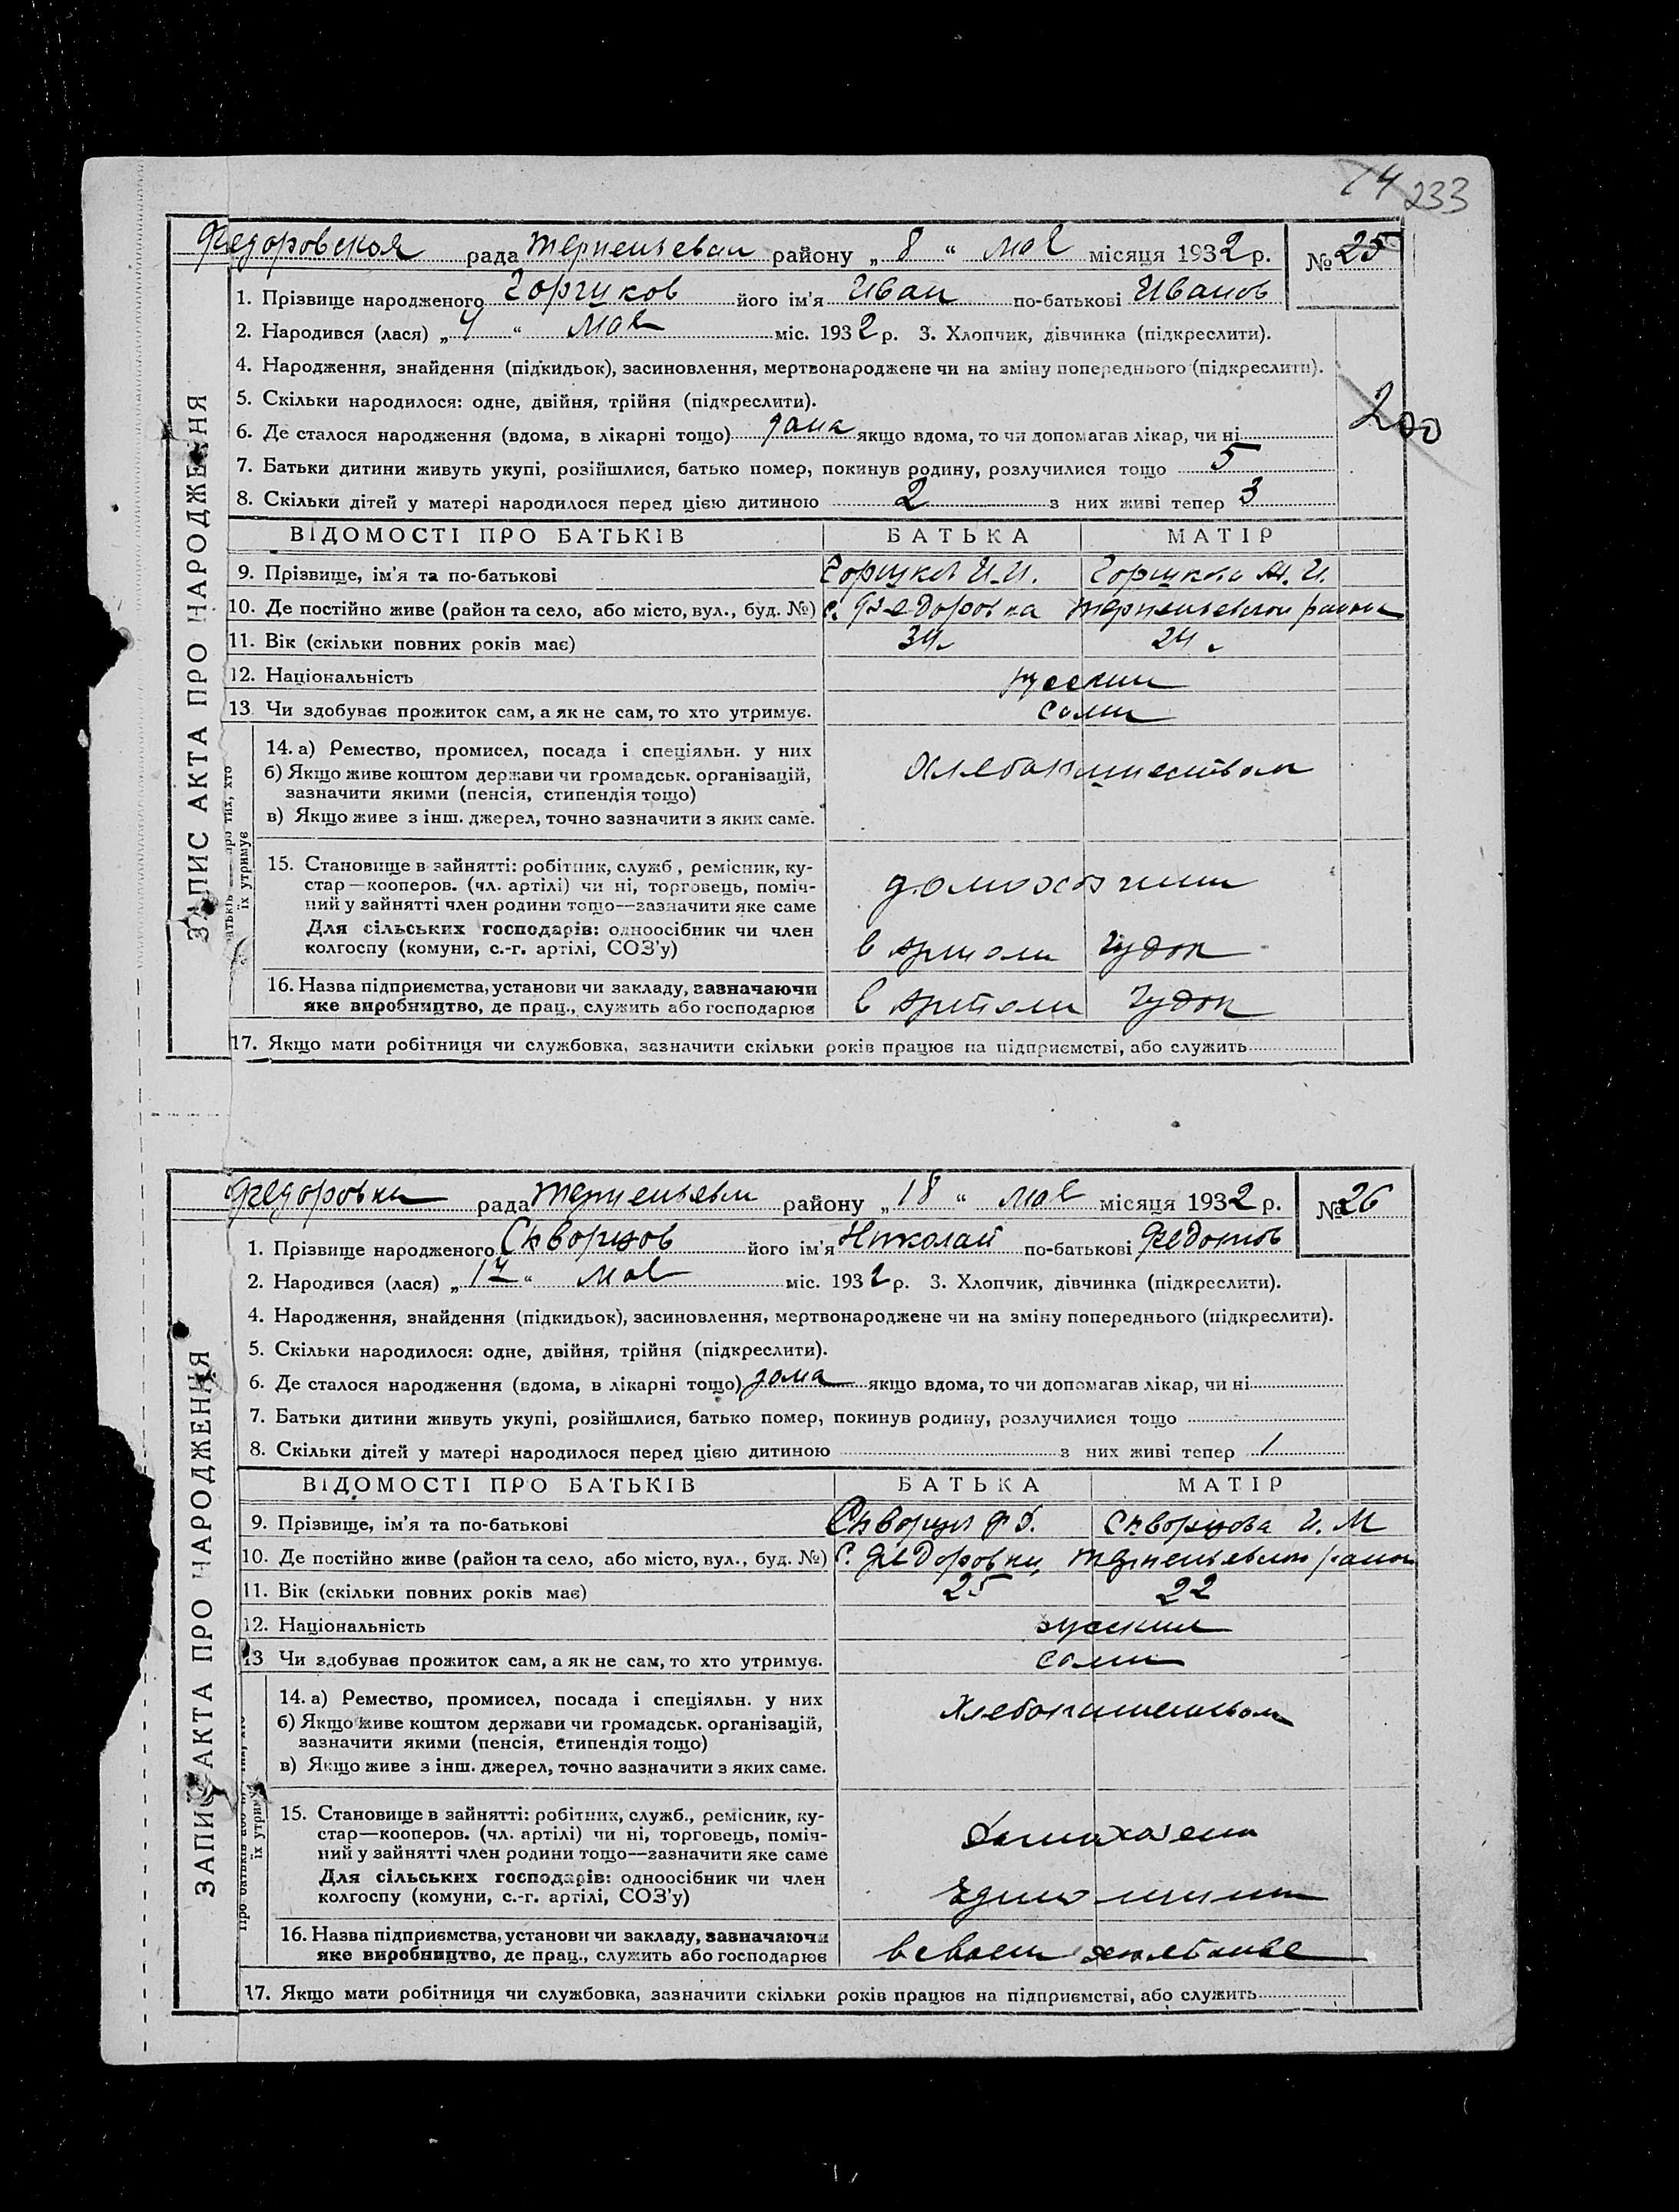 74 233
Федоровская рада Терпеньевск району „ 8 “ мая місяця 1932 р. № 25
1. Прізвище народженого Горшков його ім'я Иван по-батькові Иванов
2. Народився (лася) „ 4 “ мая міс. 1932 р. 3. Хлопчик, дівчинка (підкреслити).
4. Народження, знайдення (підкидьок), засиновлення, мертвонароджене чи на зміну попереднього (підкреслити).
5. Скільки народилося: одне, двійня, трійня (підкреслити).
200
6. Де сталося народження (вдома, в лікарні тощо) дома якщо вдома, то чи допомагав лікар, чи ні
7. Батьки дитини живуть укупі, розійшлися, батько помер, покинув родину, розлучилися тощо 5
8. Скільки дітей у матері народилося перед цією дитиною 2 з них живі тепер 3
ЗАПИС АКТА ПРО НАРОДЖЕННЯ
ВІДОМОСТІ ПРО БАТЬКІВ БАТЬКА МАТІР
9. Прізвище, ім'я та по-батькові Горшков И.И. Горшкова М. И.
10. Де постійно живе (район та село, або місто, вул., буд. №) с. Федоровка Терпеньевского района
11. Вік (скільки повних років має) 34 24
12. Національність русский
13. Чи здобуває прожиток сам, а як не сам, то хто утримує. сами
14. а) Ремество, промисел, посада і спеціяльн. у них
б) Якщо живе коштом держави чи громадськ. організацій, хлебопашеством
зазначити якими (пенсія, стипендія тощо)
в) Якщо живе з інш. джерел, точно зазначити з яких саме.
про тих, хто
їх утримує
15. Становище в зайнятті: робітник, служб., ремісник, ку-
стар—кооперов. (чл. артілі) чи ні, торговець, поміч-
ний у зайнятті член родини тощо—зазначити яке саме
Для сільських господарів: одноосібник чи член
колгоспу (комуни, с.-г. артілі, СОЗ'у) в артели Гудок
16. Назва підприємства, установи чи закладу, зазначаючи
яке виробництво, де прац., служить або господарює в артели Гудок
17. Якщо мати робітниця чи службовка, зазначити скільки років працює на підприємстві, або служить
Федоровка рада Терпеньевск району „ 18 “ мая місяця 1932 р. № 26
1. Прізвище народженого Скворцов його ім'я Николай по-батькові Федотов
2. Народився (лася) „ 17 “ мая міс. 1932 р. 3. Хлопчик, дівчинка (підкреслити).
4. Народження, знайдення (підкидьок), засиновлення, мертвонароджене чи на зміну попереднього (підкреслити).
5. Скільки народилося: одне, двійня, трійня (підкреслити).
6. Де сталося народження (вдома, в лікарні тощо) дома якщо вдома, то чи допомагав лікар, чи ні
7. Батьки дитини живуть укупі, розійшлися, батько помер, покинув родину, розлучилися тощо
8. Скільки дітей у матері народилося перед цією дитиною з них живі тепер 1
ЗАПИС АКТА ПРО НАРОДЖЕННЯ
ВІДОМОСТІ ПРО БАТЬКІВ БАТЬКА МАТІР
9. Прізвище, ім'я та по-батькові Скворцов Ф. Скворцова И. М
10. Де постійно живе (район та село, або місто, вул., буд. №) с. Федоровка, Терпеньевского район
11. Вік (скільки повних років має) 25 22
12. Національність русский
13 Чи здобуває прожиток сам, а як не сам, то хто утримує. сами
14. а) Ремество, промисел, посада і спеціяльн. у них хлебопашеством
б) Якщо живе коштом держави чи громадськ. організацій,
зазначити якими (пенсія, стипендія тощо)
в) Якщо живе з інш. джерел, точно зазначити з яких саме.
їх утримує
15. Становище в зайнятті: робітник, служб., ремісник, ку-
стар—кооперов. (чл. артілі) чи ні, торговець, поміч-
ний у зайнятті член родини тощо—зазначити яке саме
Для сільських господарів: одноосібник чи член
колгоспу (комуни, с.-г. артілі, СОЗ'у)
16. Назва підприємства, установи чи закладу, зазначаючи
яке виробництво, де прац., служить або господарює в своем
17. Якщо мати робітниця чи службовка, зазначити скільки років працює на підприємстві, або служить